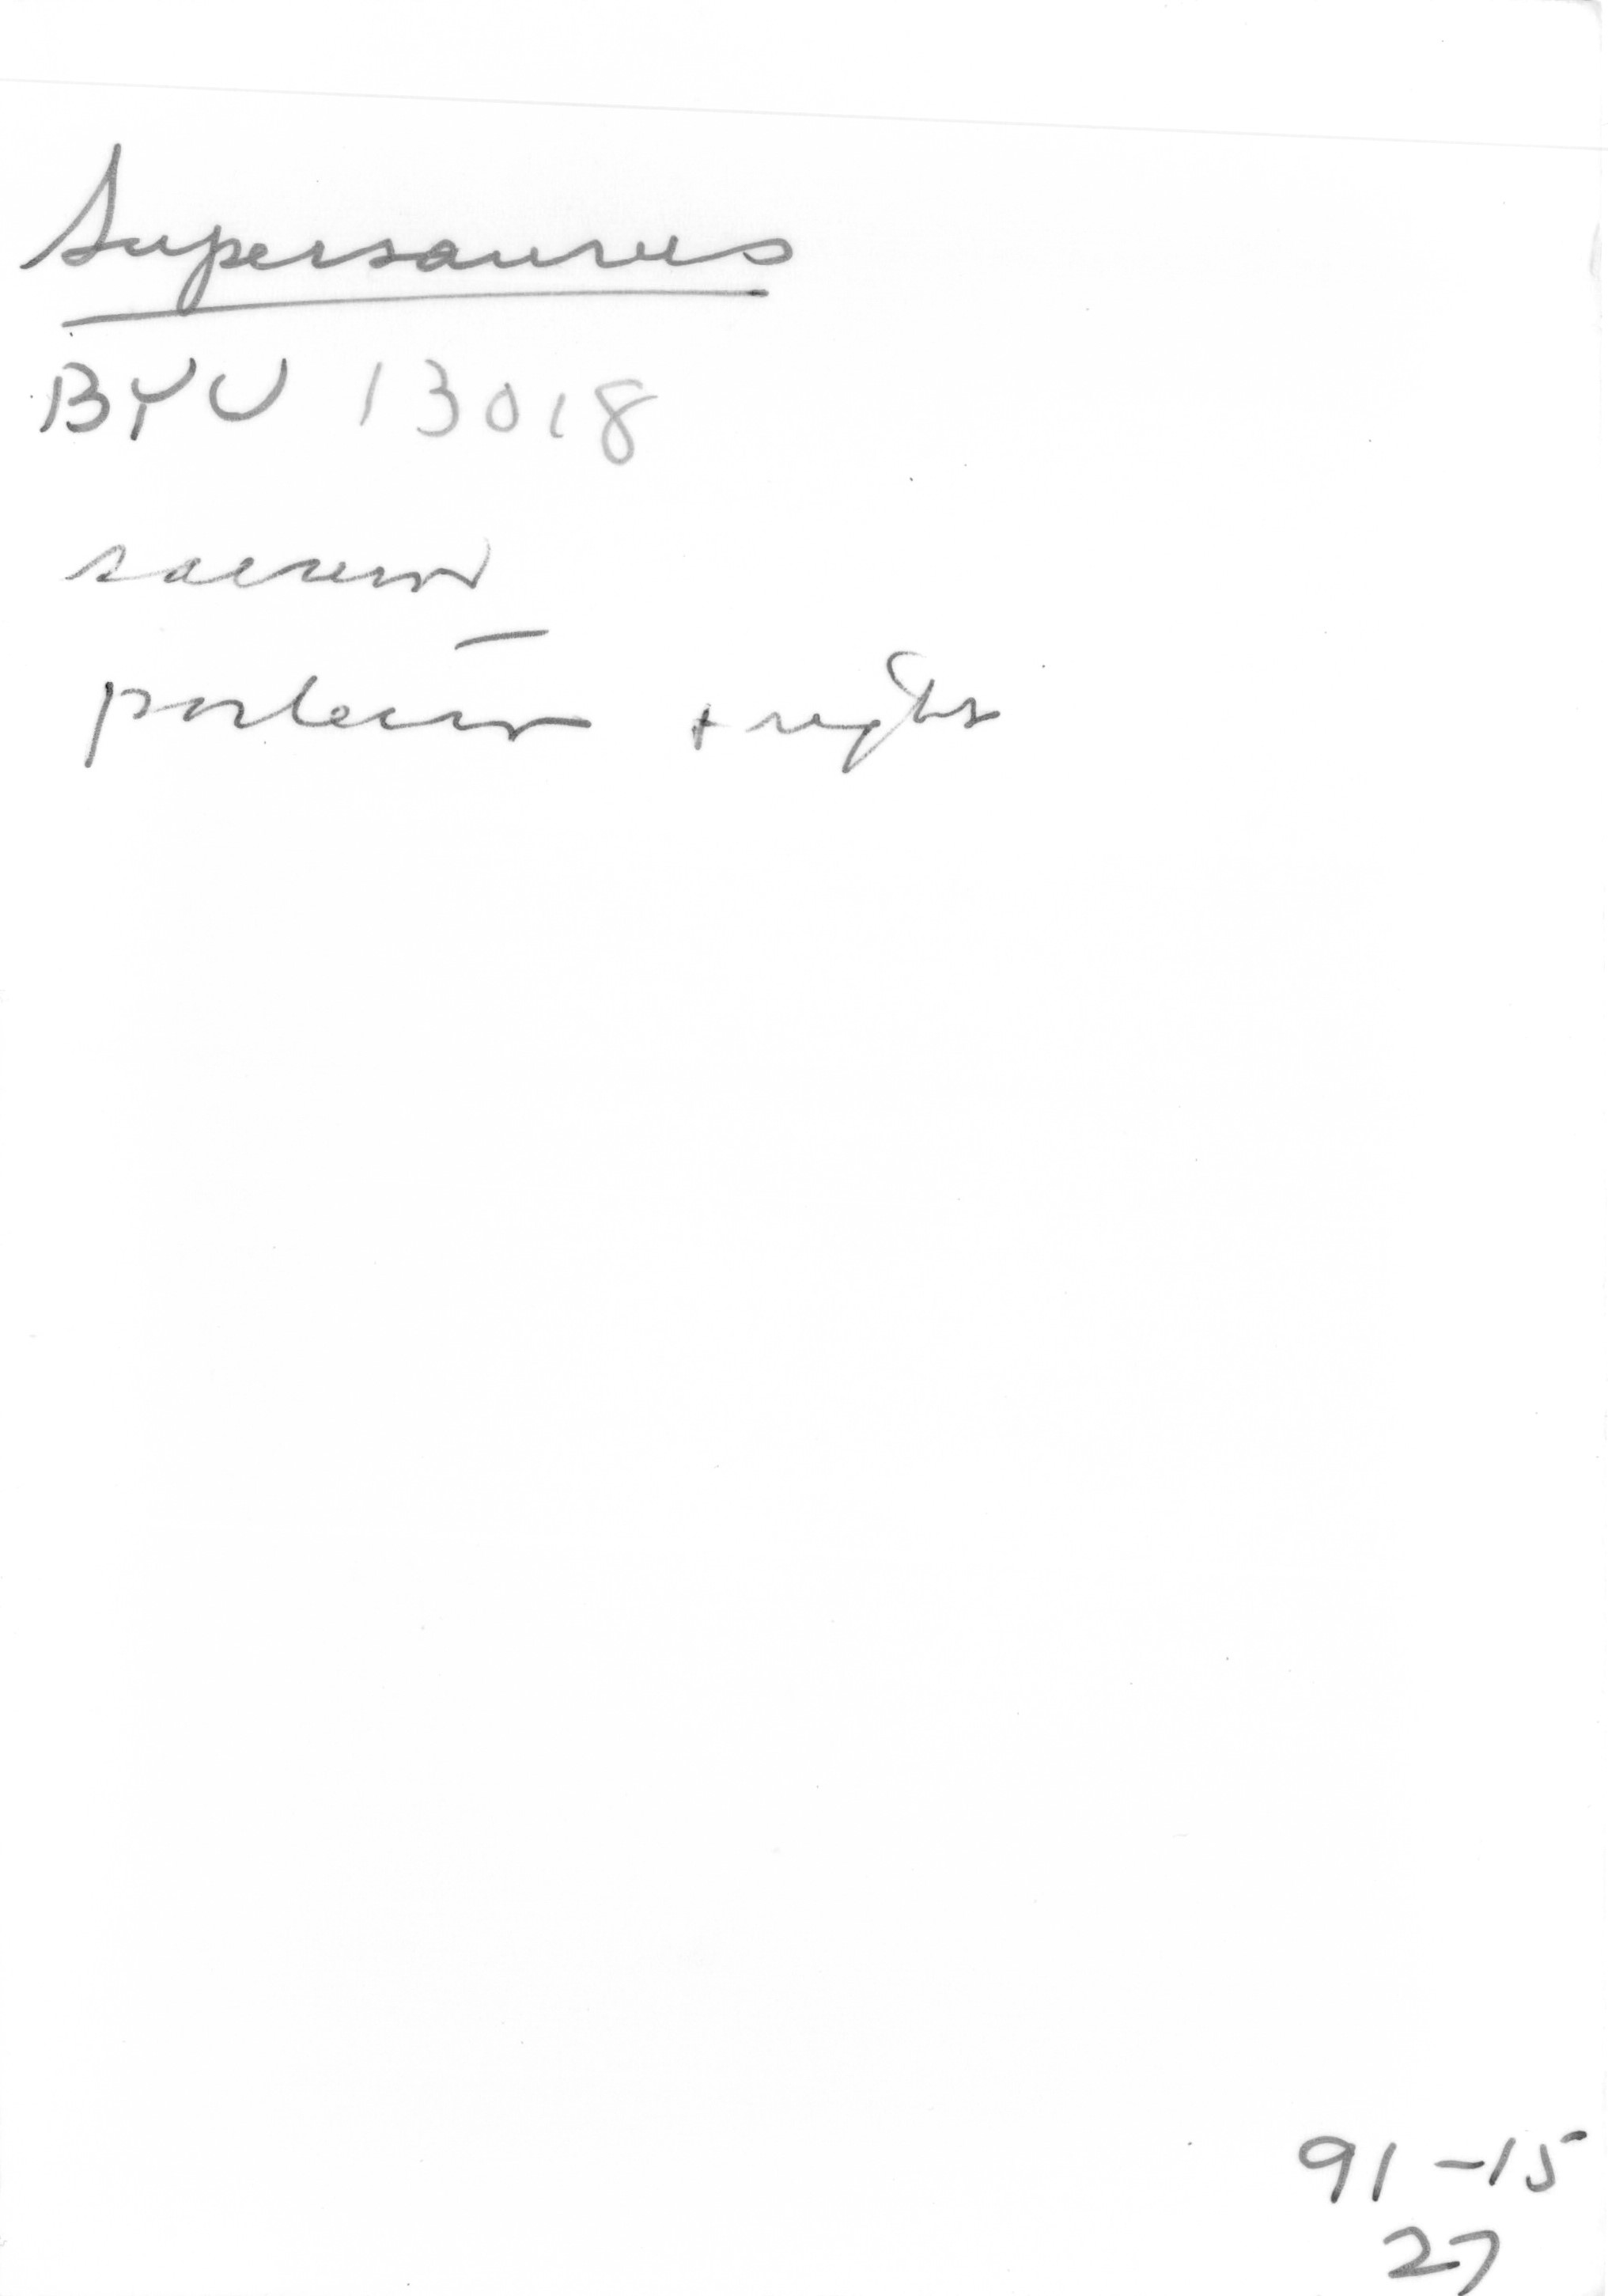 Supersaurus
BYU 13018
sacrum
posterior + right
91-15
27